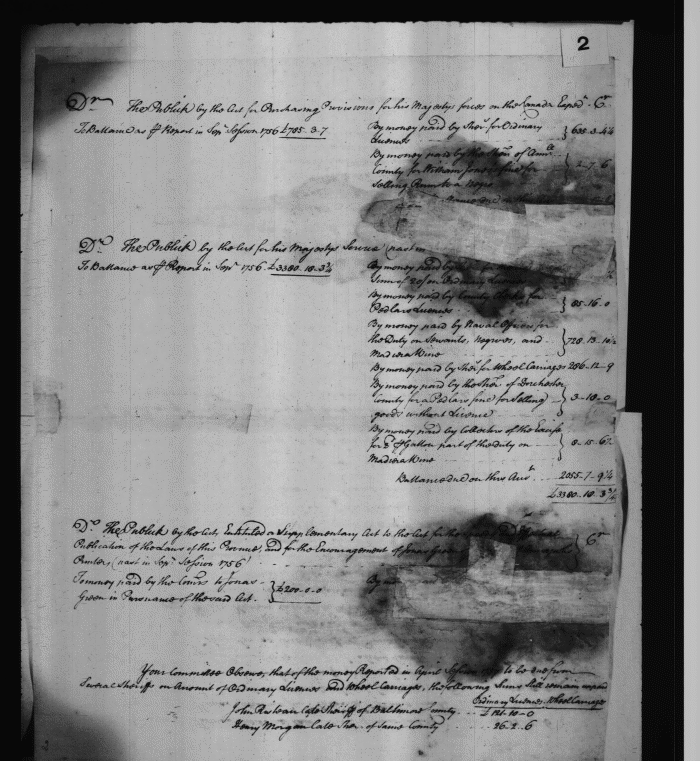 2
Dr The Publick by the Act for Purchasing Provisions for his Majestys forces on the Canada Expedn. Cr
To Ballance as ⅌ Report in Sepr Session 1756 £785.3.7
By money paid by Sherfs for Ordinary
Licences } 635..3..4¼
By money paid by the Sherf. of Annl
County for William fine for
Selling Rum to a Negro } 2..7..6
Do The Publick by the Act for his Majestys Service past in
To Ballance as ⅌ Report in Sepr 1756 £3380..18..3¾
By money paid by
on Ordinary Licences
By money paid by County Clerks for
Pedlars Licences } 85..16..0
By money paid by Naval Officers for
the Duty on Servants, Negroes, and
Madeira Wine } 728..13..10½
By money paid by Sherfs for Wheel Carriages 286..12..9
By money paid by the Sherf. of Dorchester
County for a Pedlars fine for Selling
goods without Licence } 3..18..0
By money paid by Collectors of the Excise
⅌ Gallon part of the duty on
Madeira Wine } 8..15..6½
Ballance due on this Act 2055..7..9¼
£3380..18..3¾
Do The Publick by the Act, Entituled a Supplementary Act to the Act for the
Publication of the Laws of this Province, and for the Encouragement of Jonas Green
Printer, past in Sepr Session 1756 Cr
To money paid by the Comrs to Jonas
Green in Pursuance of the said Act. } £200..0..0
By
Your Committee Observe, that of the money Reported in April Session to be due from
Several Sheriffs on Account of Ordinary Licences and Wheel Carriages, the following Sums Still remain unpaid
Ordinary Licences. Wheel Carriages
John Risteau Late Sheriff of Baltimore County £121..10..0
Henry Morgan Late Sherf. of Same County 26..2..6